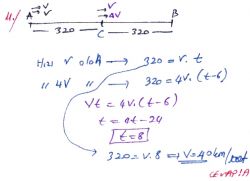 11.)
A V V B
V 4V
320 C 320
Hızı V olsa → 320 = V.t
" 4V " → 320 = 4V.(t-6)
Vt = 4V.(t-6)
t = 4t-24
t = 8
320 = V.8 ⇒ V = 40 km/saat
CEVAP: